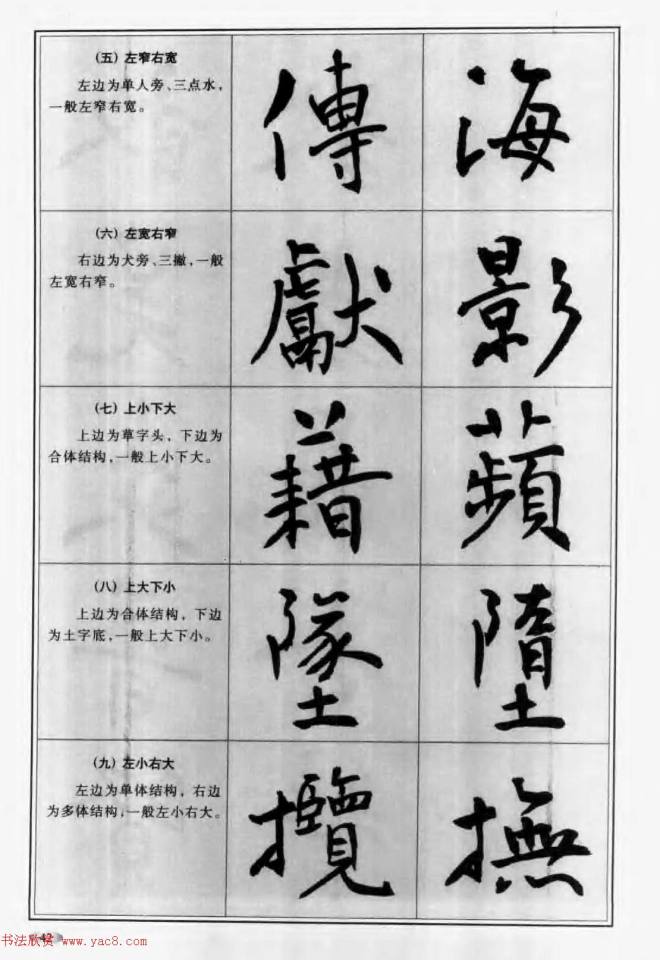 (五) 左窄右宽
左边为单人旁、三点水，
一般左窄右宽。
傳 海
(六) 左宽右窄
右边为犬旁、三撇，一般
左宽右窄。
獻 影
(七) 上小下大
上边为草字头，下边为
合体结构，一般上小下大。
藉 蘋
(八) 上大下小
上边为合体结构，下边
为土字底，一般上大下小。
墜 墮
(九) 左小右大
左边为单体结构，右边
为多体结构，一般左小右大。
攬 撫
42
书法欣赏 www.yac8.com